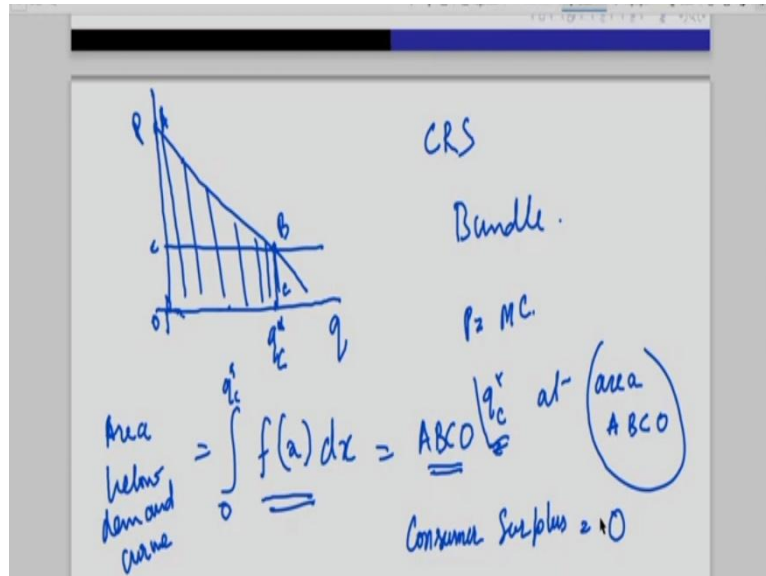 P A
CRS
Bundle.
c B
c
O q*c q
P = MC.
Area below demand curve = ∫ 0 q*c f(x) dx = ABCO | q*c at area ABCO
Consumer Surplus = 0